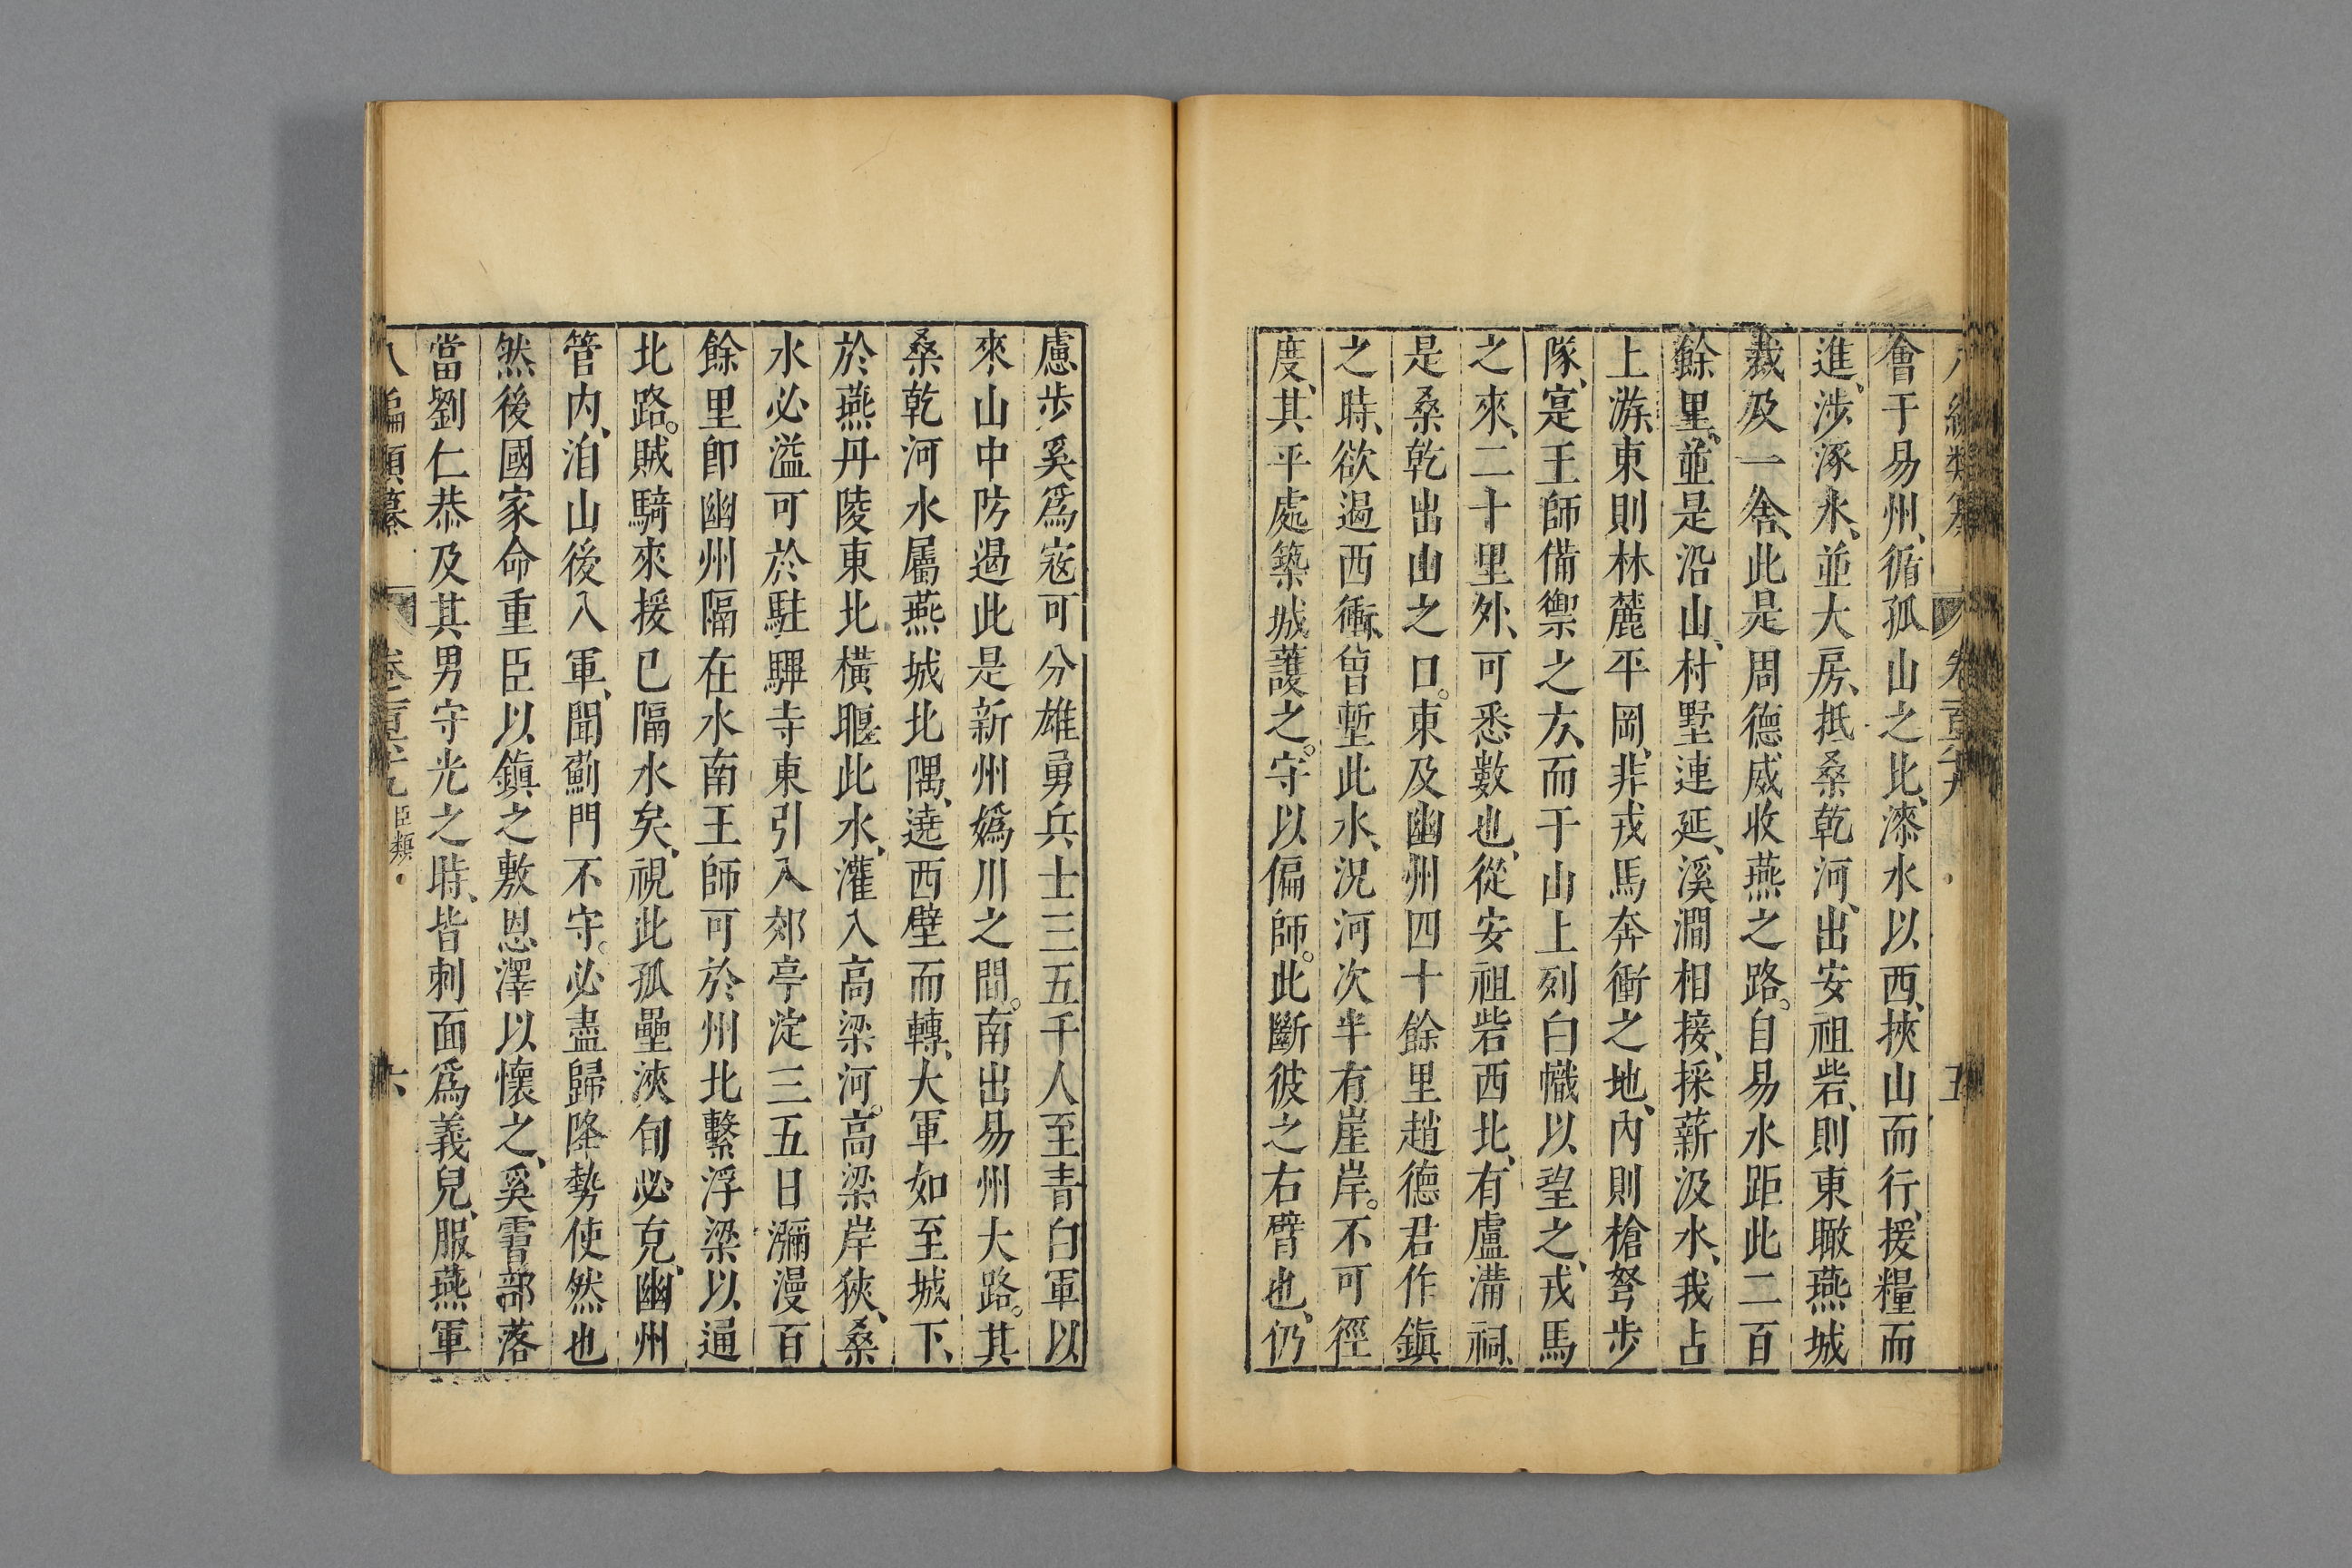 會于易州、循孤山之北、漆水以西、挾山而行、援糧而
進。涉涿水、並大房、抵桑乾河、出安祖砦、則東瞰燕城
裁及一舍、此是周德威收燕之路。自易水距此二百
餘里。並是沿山、村墅連延、溪澗相接、採薪汲水、我占
上游、東則林麓平岡、非戎馬奔衝之地、內則槍弩步
隊、寔王師備禦之方、而于山上列白幟以望之、戎馬
之來、二十里外、可悉數也、從安祖砦西北、有盧溝祠、
是桑乾出山之口。東及幽州四十餘里趙德君作鎮
之時、欲遏西衝、曾塹此水、況河次半有崖岸。不可徑
度、其平處築城護之。守以偏師。此斷彼之右臂也、仍
慮步奚爲寇可分雄勇兵士三五千人至青白軍以
來山中防遏此是新州嬀川之間。南出易州大路。其
桑乾河水屬燕城北隅、遶西壁而轉、大軍如至城下、
於燕丹陵東北橫堰此水、灌入高梁河。高梁岸狹、桑
水必溢可於駐驆寺東引入郊亭淀三五日瀰漫百
餘里卽幽州隔在水南王師可於州北繫浮梁以通
北路。賊騎來援已隔水矣、視此孤壘浹旬必克、幽州
管内、洎山後入軍、聞薊門不守。必盡歸降勢使然也
然後國家命重臣以鎮之敷恩澤以懷之、奚霫部落
當劉仁恭及其男守光之時、皆刺面爲義兒、服燕軍
八編類纂 卷二百六十九 臣類 六